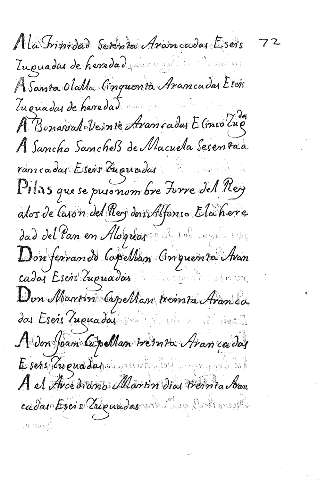 A la Trinidad Setenta Arancadas E seis 72
Zuguadas de heredad
A Santa Olalla Cinquenta Arancadas E seis
Zuguadas de heredad
A Bonaval Veinte Arancadas E Cinco Zugdas
A Sancho Sanchez de Macuela Sesenta a
rancadas E seis Zuguadas
Pilas que se puso nombre Torre del Rey
a los de Cason del Rey don Alfonso E la here
dad del Pan en Aloquas
Don ferrando Capellan Cinquenta Aran
cadas E seis Zuguadas
Don Martin Capellan treinta Aranca
das E seis Zuguadas
A don Joan Capellan treinta Arancadas
E seis Zuguadas
A el Arcediano Martin dias treinta Aran
cadas E seis Zuguadas